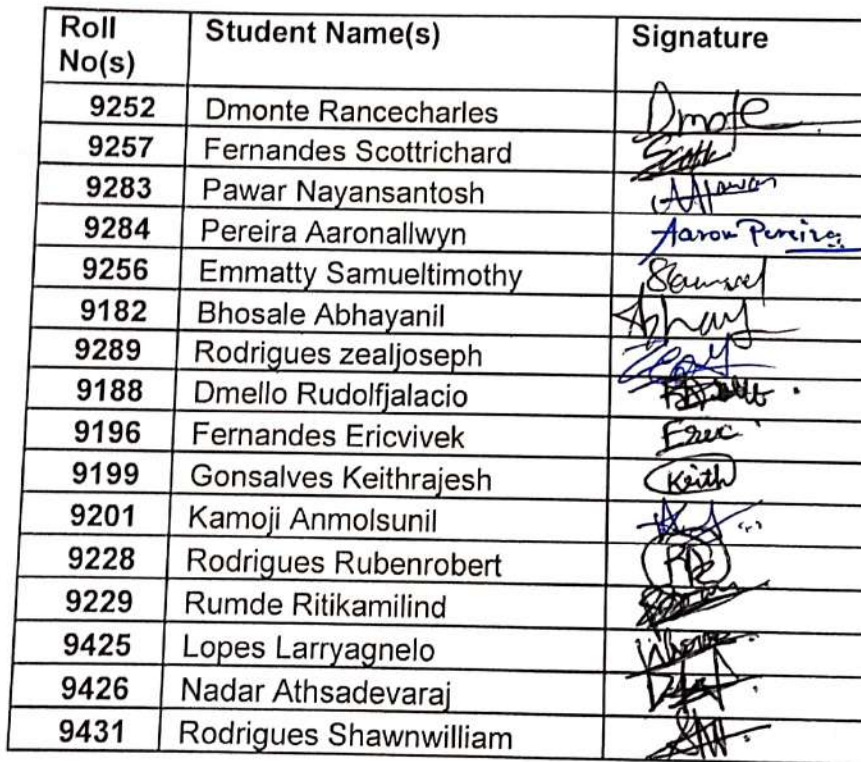 Roll No(s) Student Name(s) Signature
9252 Dmonte Rancecharles Dmote
9257 Fernandes Scottrichard Scott
9283 Pawar Nayansantosh
9284 Pereira Aaronallwyn Aaron Pereira
9256 Emmatty Samueltimothy Samuel
9182 Bhosale Abhayanil Abhay
9289 Rodrigues zealjoseph
9188 Dmello Rudolfjalacio
9196 Fernandes Ericvivek Eric
9199 Gonsalves Keithrajesh Keith
9201 Kamoji Anmolsunil
9228 Rodrigues Rubenrobert
9229 Rumde Ritikamilind
9425 Lopes Larryagnelo
9426 Nadar Athsadevaraj
9431 Rodrigues Shawnwilliam